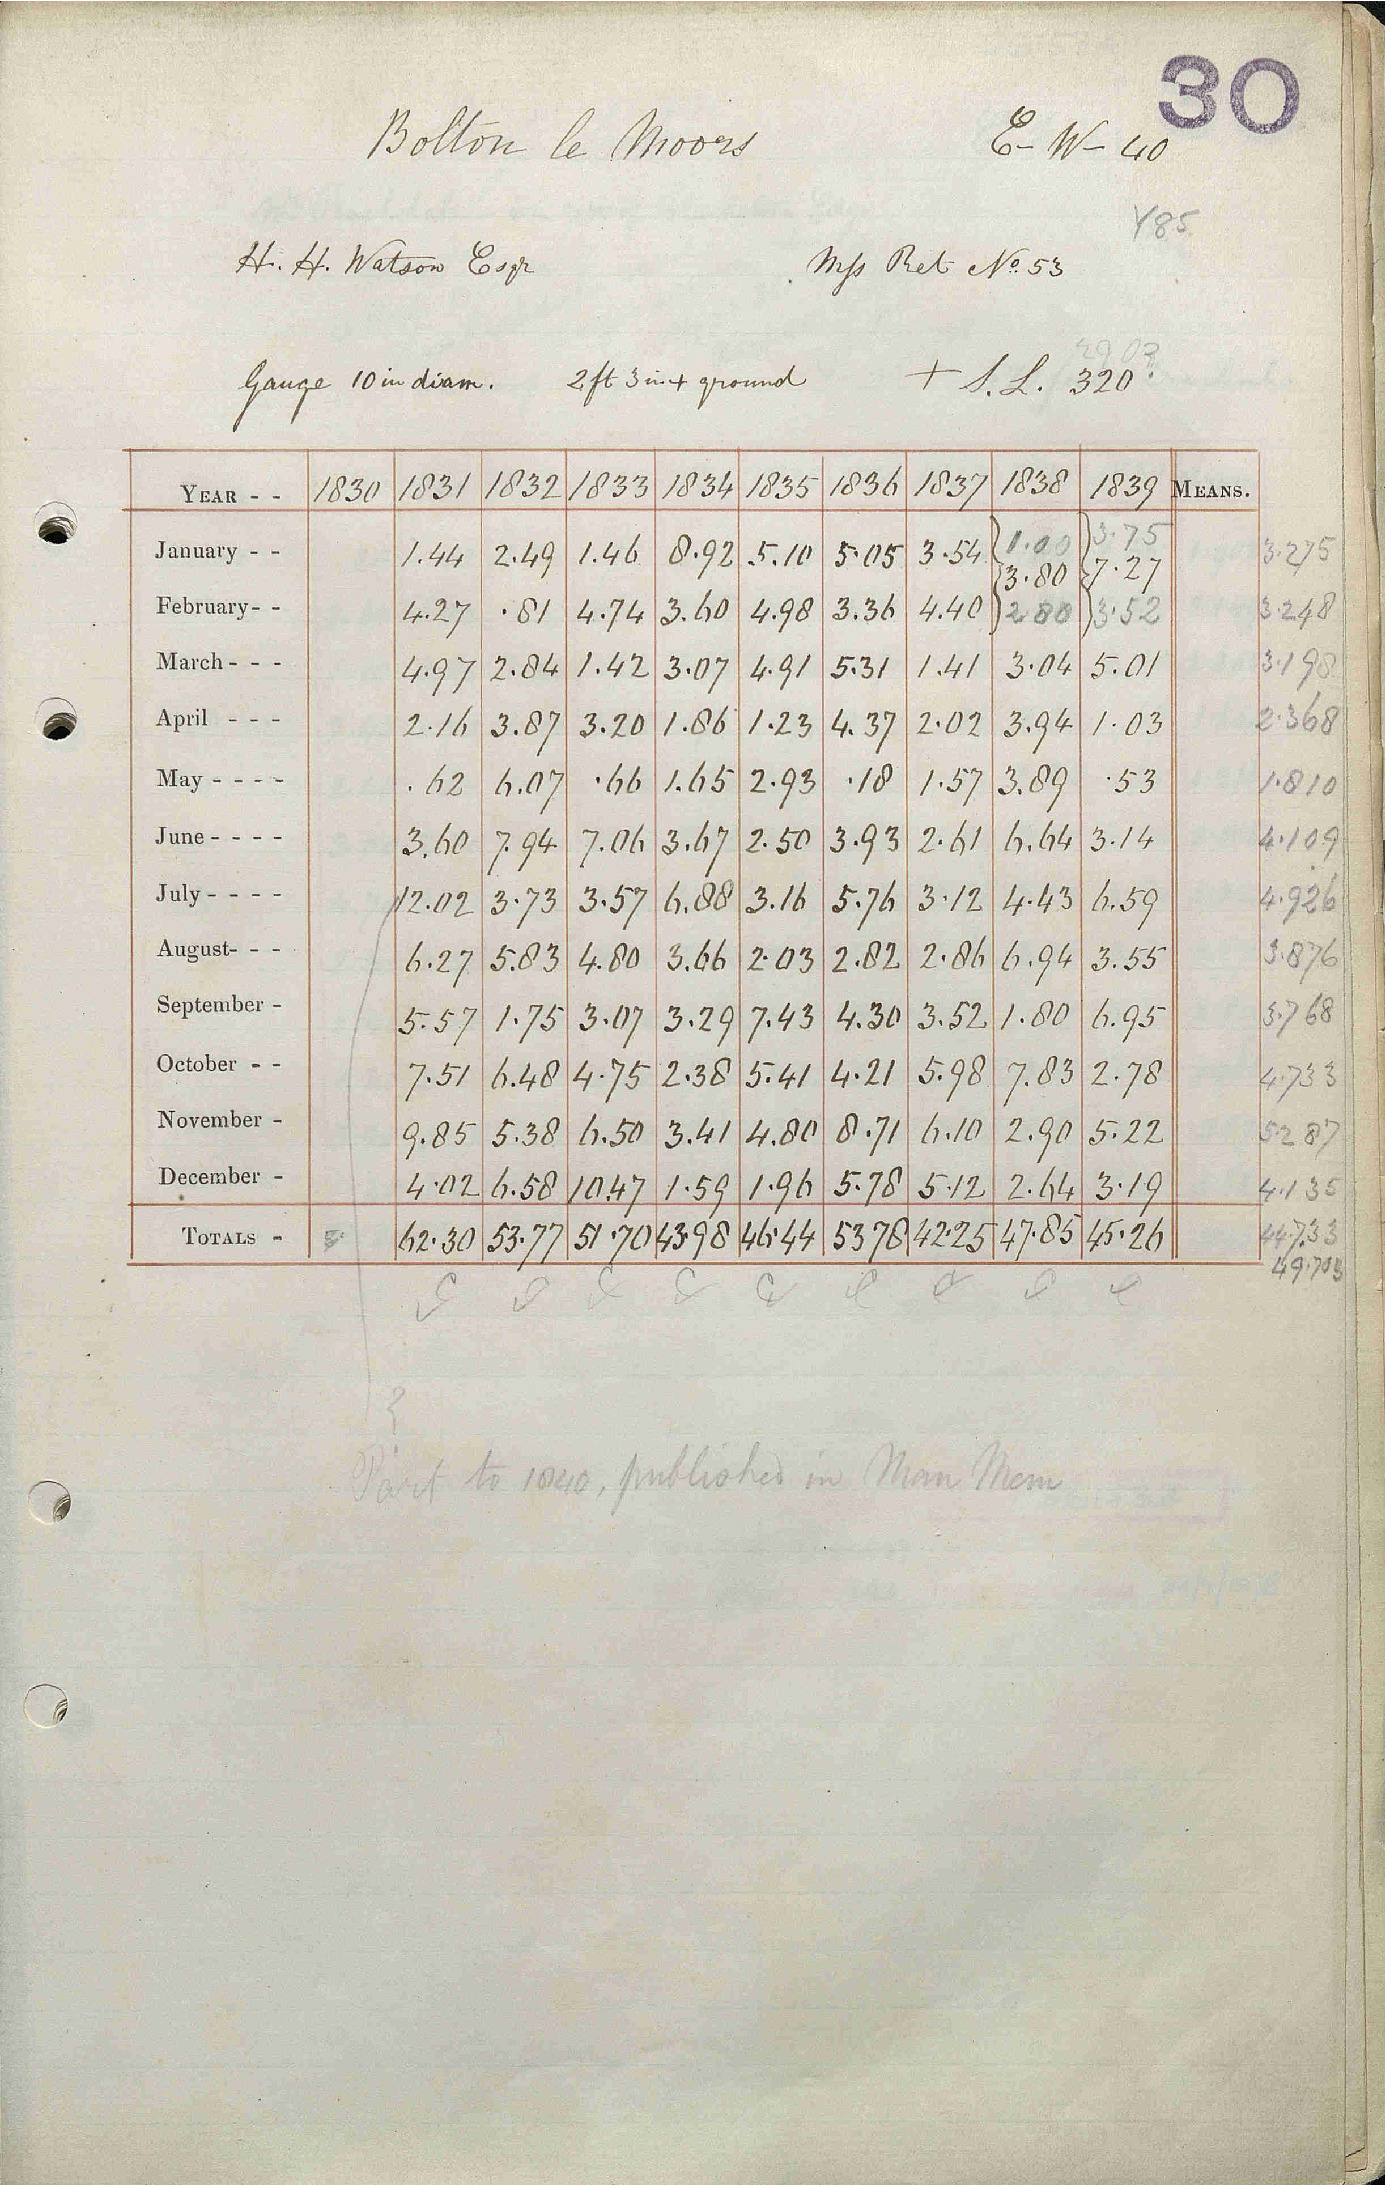 30
Bolton le Moors E- W- 40
Y85
H. H. Watson Esqr Mss Ret No. 53
Gauge 10 in diam. 2 ft 3 in + ground + S. L. 320
YEAR - - 1830 1831 1832 1833 1834 1835 1836 1837 1838 1839 MEANS.
January - - 1.44 2.49 1.46 8.92 5.10 5.05 3.54 1.00 3.75 3.275
3.80 7.27
February- - 4.27 .81 4.74 3.60 4.98 3.36 4.40 2.80 3.52 3.248
March - - - 4.97 2.84 1.42 3.07 4.91 5.31 1.41 3.04 5.01 3.198
April - - - 2.16 3.87 3.20 1.86 1.23 4.37 2.02 3.94 1.03 2.368
May - - - - .62 6.07 .66 1.65 2.93 .18 1.57 3.89 .53 1.810
June - - - - 3.60 7.94 7.06 3.67 2.50 3.93 2.61 6.64 3.14 4.109
July - - - - 12.02 3.73 3.57 6.88 3.16 5.76 3.12 4.43 6.59 4.926
August- - - 6.27 5.83 4.80 3.66 2.03 2.82 2.86 6.94 3.55 3.876
September - 5.57 1.75 3.07 3.29 7.43 4.30 3.52 1.80 6.95 3.768
October - - 7.51 6.48 4.75 2.38 5.41 4.21 5.98 7.83 2.78 4.733
November - 9.85 5.38 6.50 3.41 4.80 8.71 6.10 2.90 5.22 5.287
December - 4.02 6.58 10.47 1.59 1.96 5.78 5.12 2.64 3.19 4.135
TOTALS - 62.30 53.77 51.70 43.98 46.44 53.78 42.25 47.85 45.26 44.733
49.703
?
Part to 1840, published in Man Mem